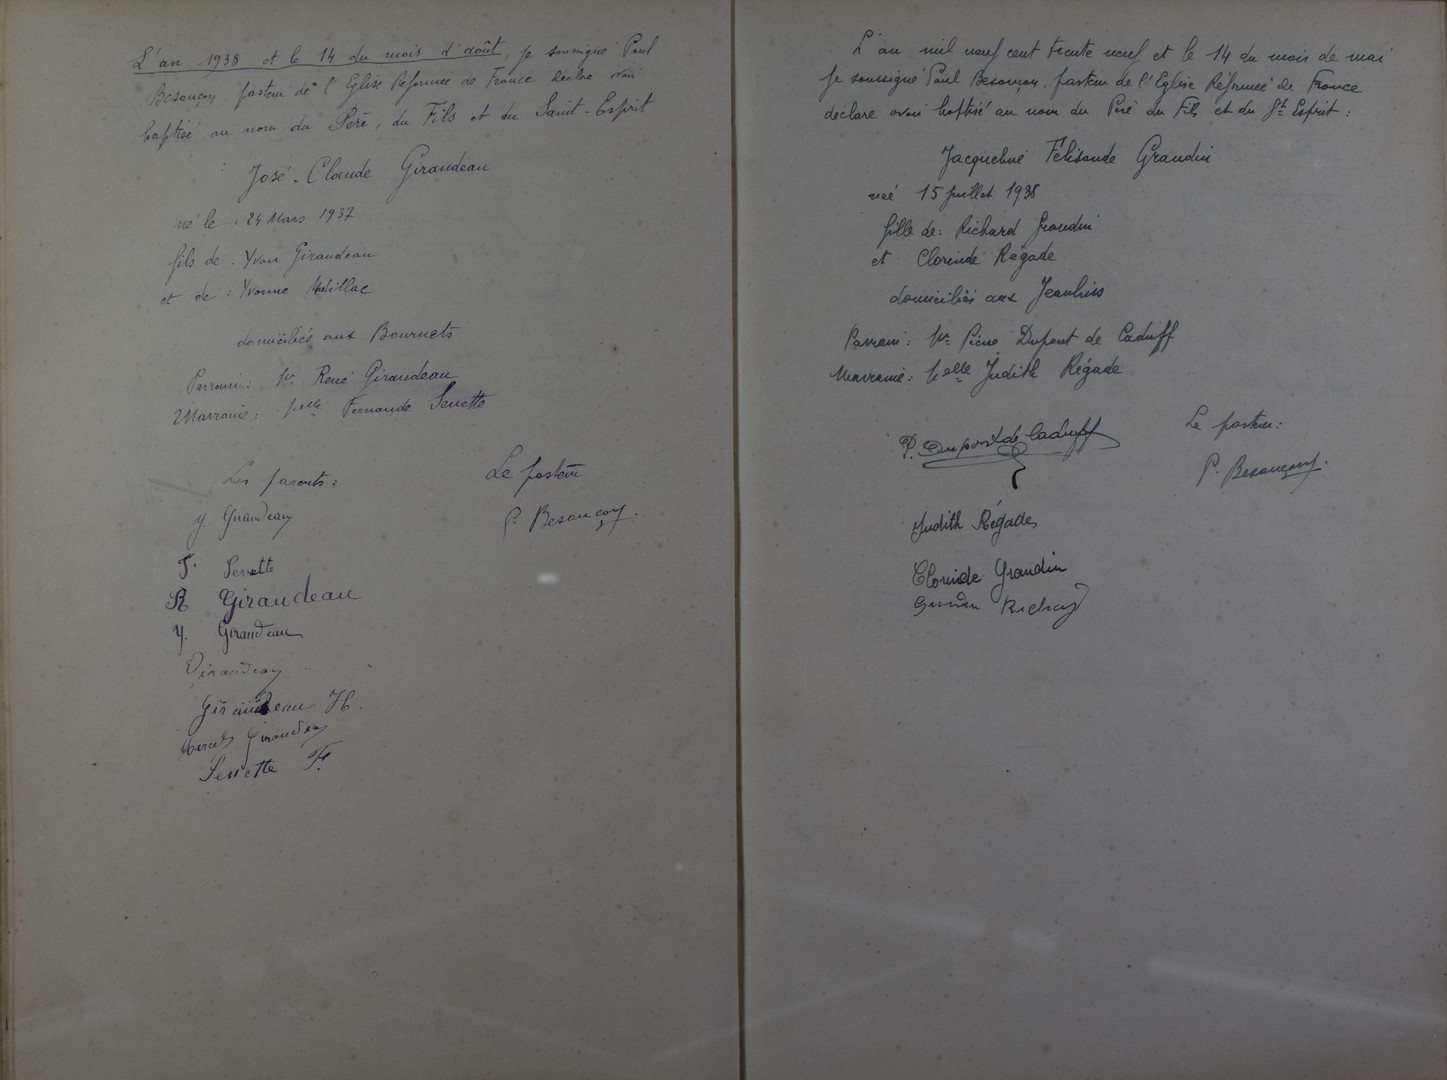 L'an 1938 et le 14 du mois d'août, je soussigné Paul
Besançon, pasteur de l'Eglise Réformée de France déclare avoir
baptisé au nom du Père, du Fils et du Saint-Esprit
José-Claude Giraudeau
né le : 24 Mars 1937
fils de : Yvon Giraudeau
et de : Yvonne
domiciliés aux Bournets
Parrain : Mr René Giraudeau
Marraine : Melle Fernande Senette
Les parents :
Le pasteur
Y. Giraudeau
P. Besançon.
F. Senette
R Giraudeau
Y. Giraudeau
Giraudeau
Giraudeau H.
Marcel Giraudeau
Senette F.
L'an mil neuf cent trente neuf et le 14 du mois de mai
je soussigné Paul Besançon, pasteur de l'Eglise Réformée de France
déclare avoir baptisé au nom du Père du Fils et du St Esprit :
Jacqueline Félisande Graudin
née 15 juillet 1938
fille de : Richard Graudin
et Clorinde Régade
domiciliés aux
Parrain : Mr Pierre Dupont de Caduff
Marraine : Melle Judith Régade
P. Dupont de Caduff
Le pasteur :
P. Besançon.
Judith Régade
Clorinde Graudin
Richard